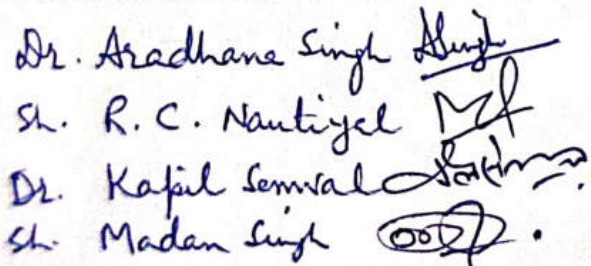 Dr. Aradhana Singh ASingh
Sh. R. C. Nautiyal
Dr. Kapil Semwal
Sh. Madan Singh